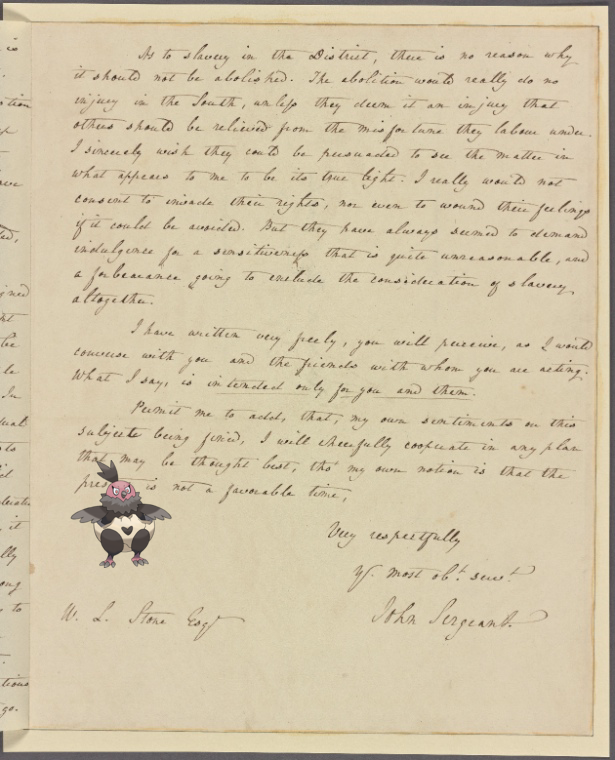 As to slavery in the District, there is no reason why
it should not be abolished. The abolition would really do no
injury in the South, unless they deem it an injury that
others should be relieved from the misfortune they labour under.
I sincerely wish they could be persuaded to see the matter in
what appears to me to be its true light. I really would not
consent to invade their rights, nor even to wound their feelings
if it could be avoided. But they have always seemed to demand
indulgence for a sensitiveness that is quite unreasonable, and
a forbearance going to exclude the consideration of slavery
altogether.
I have written very freely, you will perceive, as I would
converse with you and the friends with whom you are acting.
What I say, is intended only for you and them.
Permit me to add, that, my own sentiments on this
subject being fixed, I will cheerfully cooperate in any plan
that may be thought best, tho' my own notion is that the
is not a favorable time,
Very respectfully
Yr. most obt. servt.
John Sergeant.
W. L. Stone Esqr